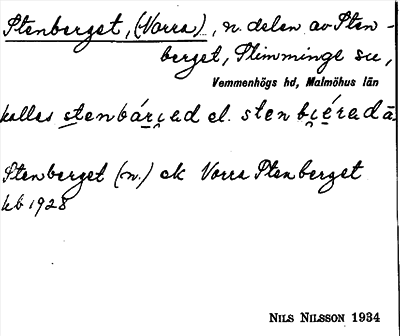 Stenberget, (Norra), n. delen av Sten-
berget, Slimminge sn,
Vemmenhögs hd, Malmöhus län
kallas
Stenberget (n.) ek Norra Stenberget
kb 1928
NILS NILSSON 1934